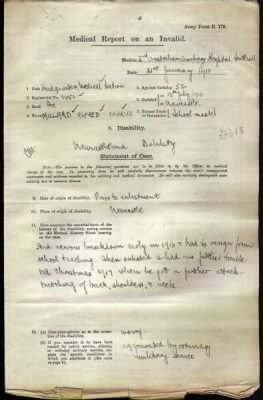 Army Form B. 179.
Medical Report on an Invalid.
Station 2nd Australian Auxiliary Hospital Southall
Date 21st January 1918
1. Unit Headquarters
2. Regimental No.
3. Rank
4. Name MILLARD ALFRED CHARLES
5. Age last birthday 52
6. Enlisted on July 1916
at Newcastle
7. Former Trade or Occupation School master
8. Disability.
Neurasthenia Debility
Statement of Case.
Note.—The answers to the following questions are to be filled in by the Officer in medical
charge of the case. In answering them he will carefully discriminate between the man's unsupported
statements and evidence recorded in his military and medical documents. He will also carefully distinguish cases
entirely due to venereal disease.
9. Date of origin of disability. Prior to enlistment
10. Place of origin of disability. Newcastle
11. Give concisely the essential facts of the history of the disability, noting entries on the Medical History Sheet bearing on the case.
Had nervous breakdown early in 1916 & had to resign from
school teaching. Then enlisted & had no further trouble
till Christmas 1917 when he got a further attack
twitching of back, shoulders, & neck
12. (a) Give your opinion as to the causation of the disability.
(b) If you consider it to have been caused by active service, climate, or ordinary military service, explain the specific conditions to which you attribute it
aggravated by ordinary
military service